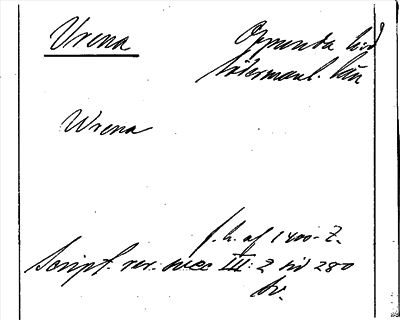 Vrena
Oppunda hd
Södermanl. län
Wrena
f. h. af 1400-t.
Script. rer. svec III: 2 sid 280